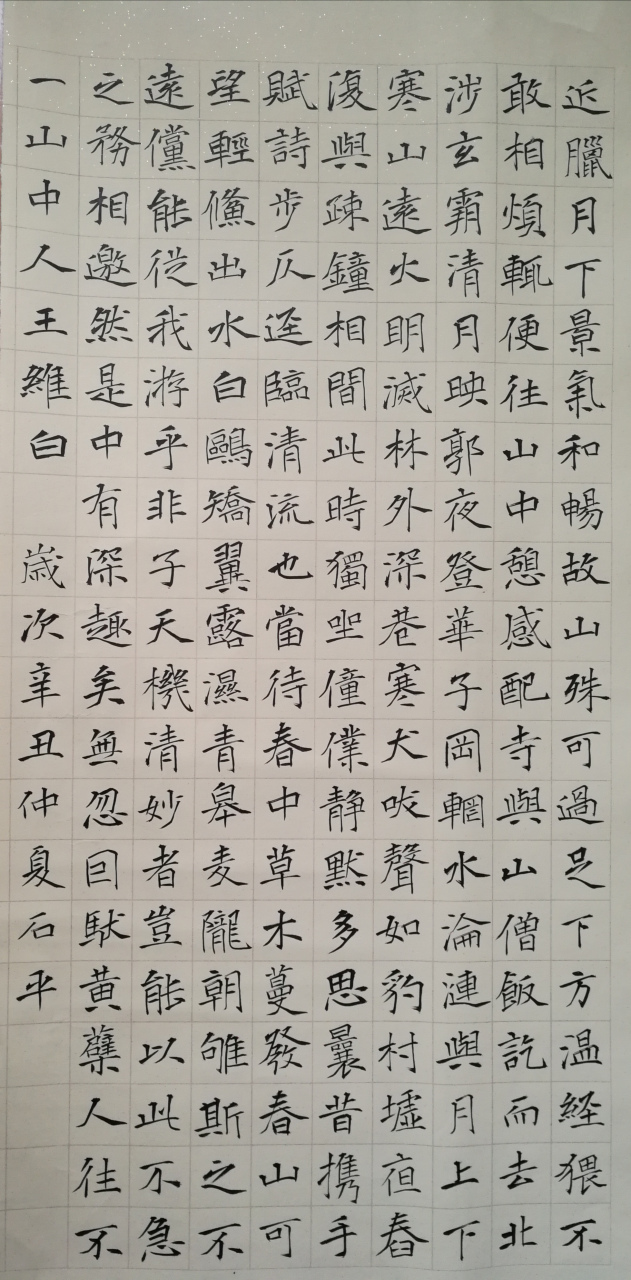 近臘月下景氣和暢故山殊可過足下方温経猥不
敢相煩輒便往山中憩感配寺與山僧飯訖而去北
涉玄霸清月映郭夜登華子岡輞水淪漣與月上下
寒山遠火明滅林外深巷寒犬吠聲如豹村墟亱舂
復與疎鐘相間此時獨坐僮僕静默多思曩昔携手
賦詩步仄迳臨清流也當待春中草木蔓發春山可
望輕鯈出水白鷗矯翼露濕青皋麦隴朝雊斯之不
遠儻能從我游乎非子天機清妙者豈能以此不急
之務相邀然是中有深趣矣無忽回馱黃蘗人往不
一山中人王維白 歲次辛丑仲夏石平